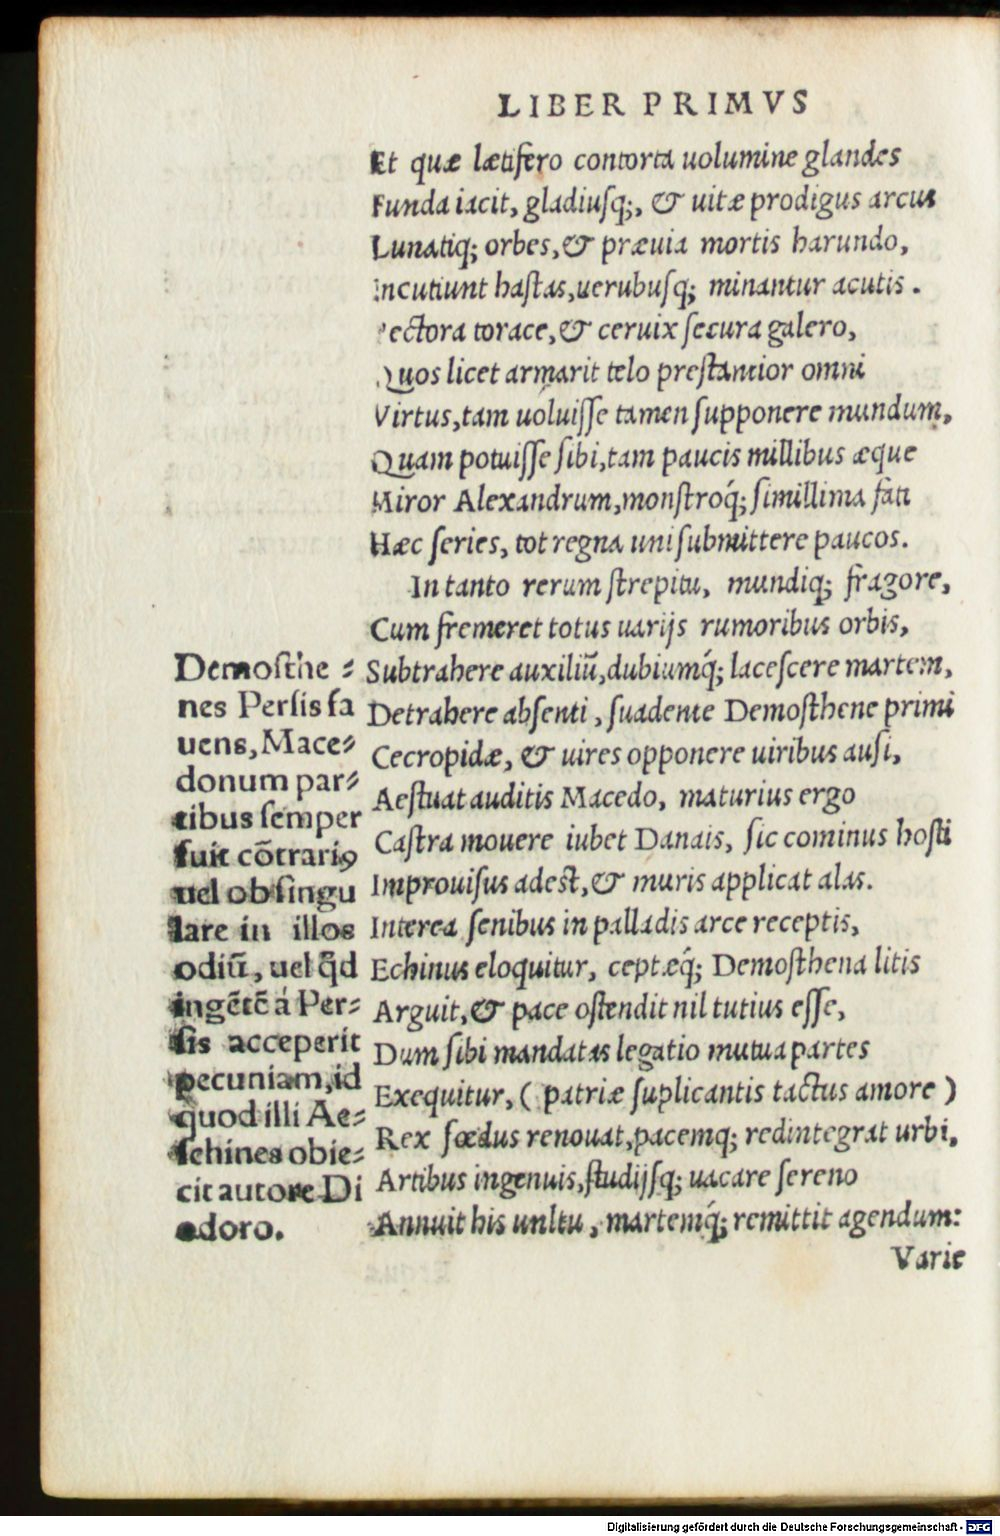 LIBER PRIMVS
Et quæ lætifero contorta uolumine glandes
Funda iacit, gladiusq;, & uitæ prodigus arcus
Lunatiq; orbes, & præuia mortis harundo,
Incutiunt hastas, uerubusq; minantur acutis.
Pectora torace, & ceruix secura galero,
Quos licet armarit telo prestantior omni
Virtus, tam uoluisse tamen supponere mundum,
Quam potuisse sibi, tam paucis millibus æque
Miror Alexandrum, monstroq́; simillima fati
Hæc series, tot regna uni submittere paucos.
In tanto rerum strepitu, mundiq; fragore,
Cum fremeret totus uarijs rumoribus orbis,
Subtrahere auxiliũ, dubiumq́; lacescere martem,
Detrahere absenti, suadente Demosthene primi
Cecropidæ, & uires opponere uiribus ausi,
Aestuat auditis Macedo, maturius ergo
Castra mouere iubet Danais, sic cominus hosti
Improuisus adest, & muris applicat alas.
Interea senibus in palladis arce receptis,
Echinus eloquitur, ceptæq́; Demosthena litis
Arguit, & pace ostendit nil tutius esse,
Dum sibi mandatas legatio mutua partes
Exequitur, ( patriæ suplicantis tactus amore )
Rex fœdus renouat, pacemq; redintegrat urbi,
Artibus ingenuis, studijsq; uacare sereno
Annuit his unltu, martemq́; remittit agendum:
Varie
Demosthe⸗
nes Persis fa
uens, Mace⸗
donum par⸗
tibus semper
fuit cõtrariꝯ
uel ob singu
lare in illos
odiũ, uel q̃d
ingẽtẽ á Per⸗
sis acceperit
pecuniam, id
quod illi Ae⸗
schines obie⸗
cit autore Di
odoro.
Digitalisierung gefördert durch die Deutsche Forschungsgemeinschaft - DFG